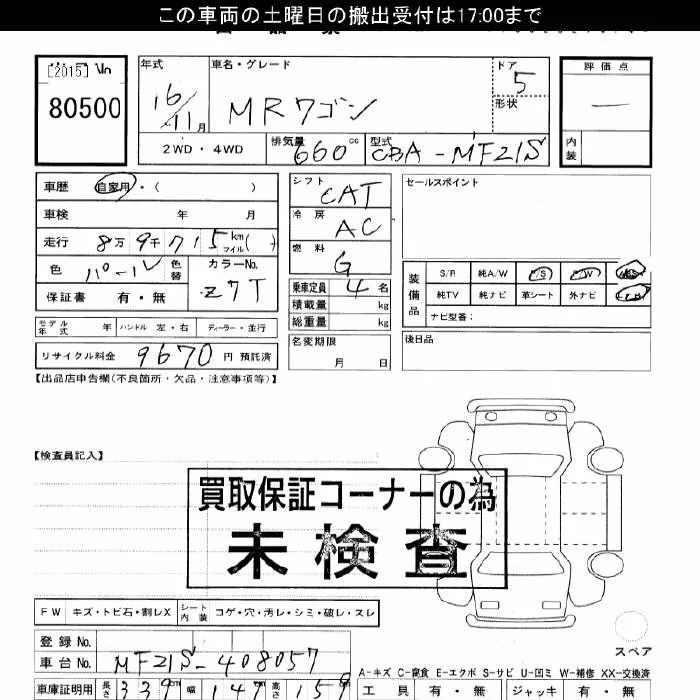 この車両の土曜日の搬出受付は17:00まで
[2015] No
80500
年式 16/11月
車名・グレード MRワゴン
ドア 5
形状
評価点 —
内装
2WD・4WD
排気量 660 cc
型式 CBA-MF21S
車歴 自家用・( )
車検 年 月
走行 8万9千715 km マイル( )
色 パール 色替
カラーNo. Z7T
保証書 有・無
シフト CAT
冷房 AC
燃料 G
乗車定員 4名
積載量 kg
総重量 kg
名変期限 月 日
セールスポイント
装備品 S/R 純A/W P/S P/W
純TV 純ナビ 革シート 外ナビ
ナビ型番:
後日品
モデル年式 年 ハンドル 左・右 ディーラー・並行
リサイクル料金 9670 円 預託済
【出品店申告欄(不良箇所・欠品・注意事項等)】
【検査員記入】
買取保証コーナーの為
未検査
FW キズ・トビ石・割レX シート内装 コゲ・穴・汚レ・シミ・破レ・スレ
登録No.
車台No. MF21S-408057
車庫証明用 長さ 339 cm 幅 147 高さ 159
スペア
A-キズ C-腐食 E-エクボ S-サビ U-凹ミ W-補修 XX-交換済
工具 有・無 ジャッキ 有・無